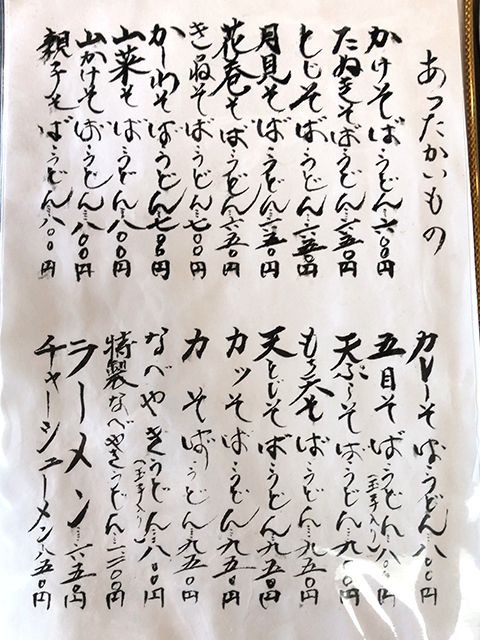 あったかいもの
かけそば・うどん…六〇〇円
たぬきそば・うどん…六五〇円
とじそば・うどん…六五〇円
月見そば・うどん…六五〇円
花巻そば・うどん…六五〇円
きねそば・うどん…七〇〇円
かしわそば・うどん…七〇〇円
山菜そば・うどん…八〇〇円
山かけそば・うどん…八〇〇円
親子そば・うどん…八〇〇円
カレーそば・うどん…八〇〇円
五目そば・うどん…八〇〇円
(玉子入り)
天ぷらそば・うどん…九五〇円
天とじそば・うどん…九五〇円
カツそば・うどん…九五〇円
力そば・うどん…九五〇円
なべやきうどん…八〇〇円
(玉子入り)
特製なべやきうどん…一二〇〇円
ラーメン…六五〇円
チャーシューメン…八五〇円